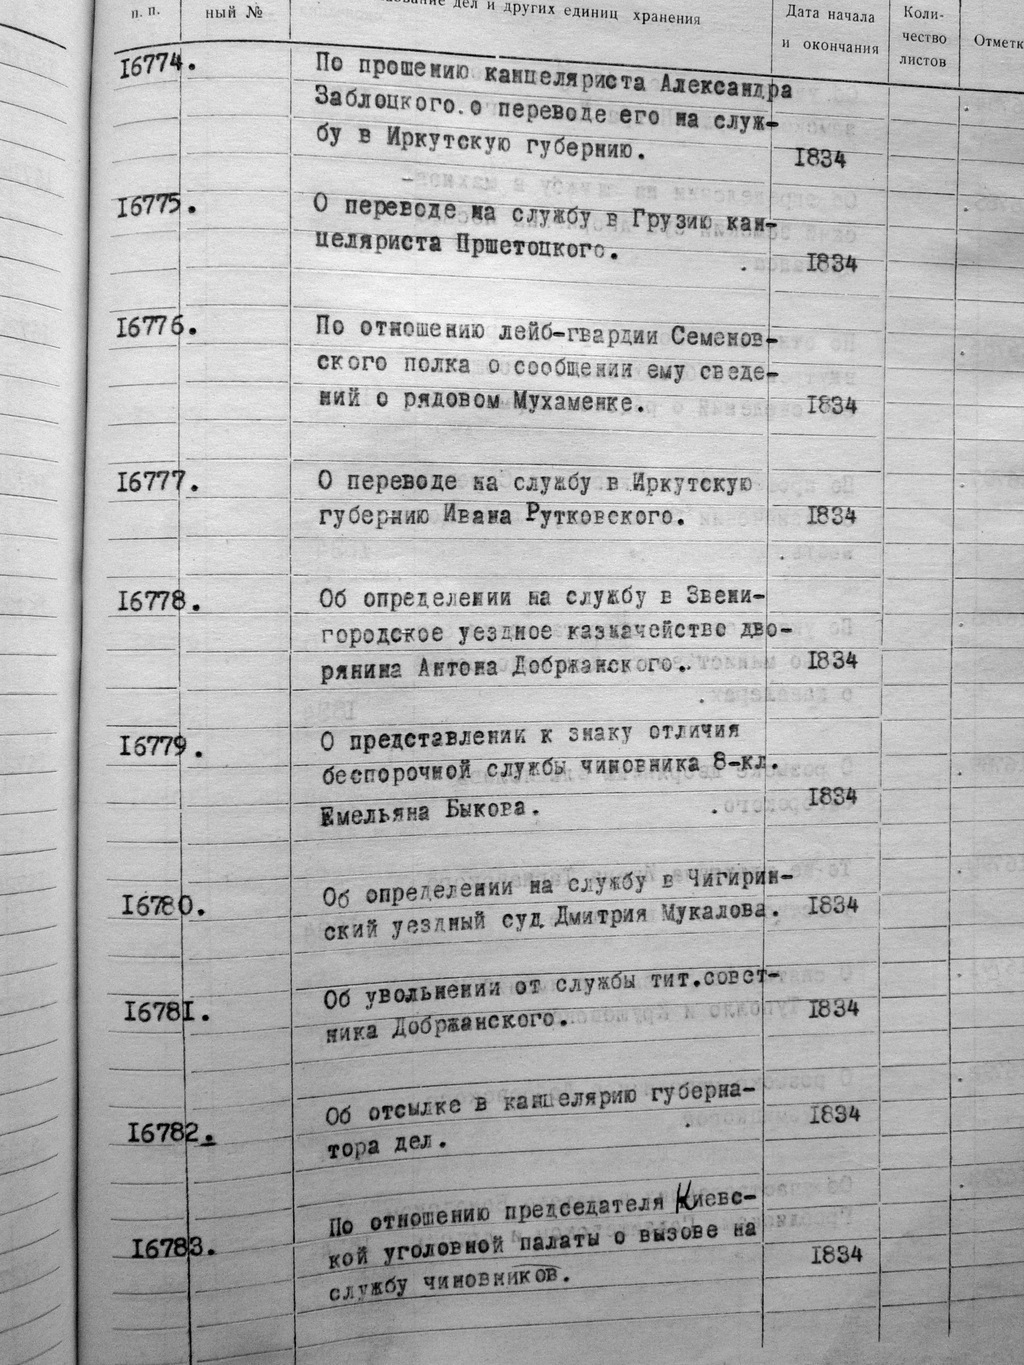 п. п.
ный №
дел и других единиц хранения
Дата начала
и окончания
Коли-
чество
листов
Отметк
16774.
По прошению канцеляриста Александра
Заблоцкого.о переводе его на служ-
бу в Иркутскую губернию.
1834
16775.
О переводе на службу в Грузию кан-
целяриста Пршетоцкого.
1834
16776.
По отношению лейб-гвардии Семенов-
ского полка о сообщении ему сведе-
ний о рядовом Мухаменке.
1834
16777.
О переводе на службу в Иркутскую
губернию Ивана Рутковского.
1834
16778.
Об определении на службу в Звени-
городское уездное казначейство дво-
рянина Антона Добржанского.
1834
16779.
О представлении к знаку отличия
беспорочной службы чиновника 8-кл.
Емельяна Быкова.
1834
16780.
Об определении на службу в Чигирин-
ский уездный суд Дмитрия Мукалова.
1834
16781.
Об увольнении от службы тит.совет-
ника Добржанского.
1834
16782.
Об отсылке в канцелярию губерна-
тора дел.
1834
16783.
По отношению председателя Киевс-
кой уголовной палаты о вызове на
службу чиновников.
1834